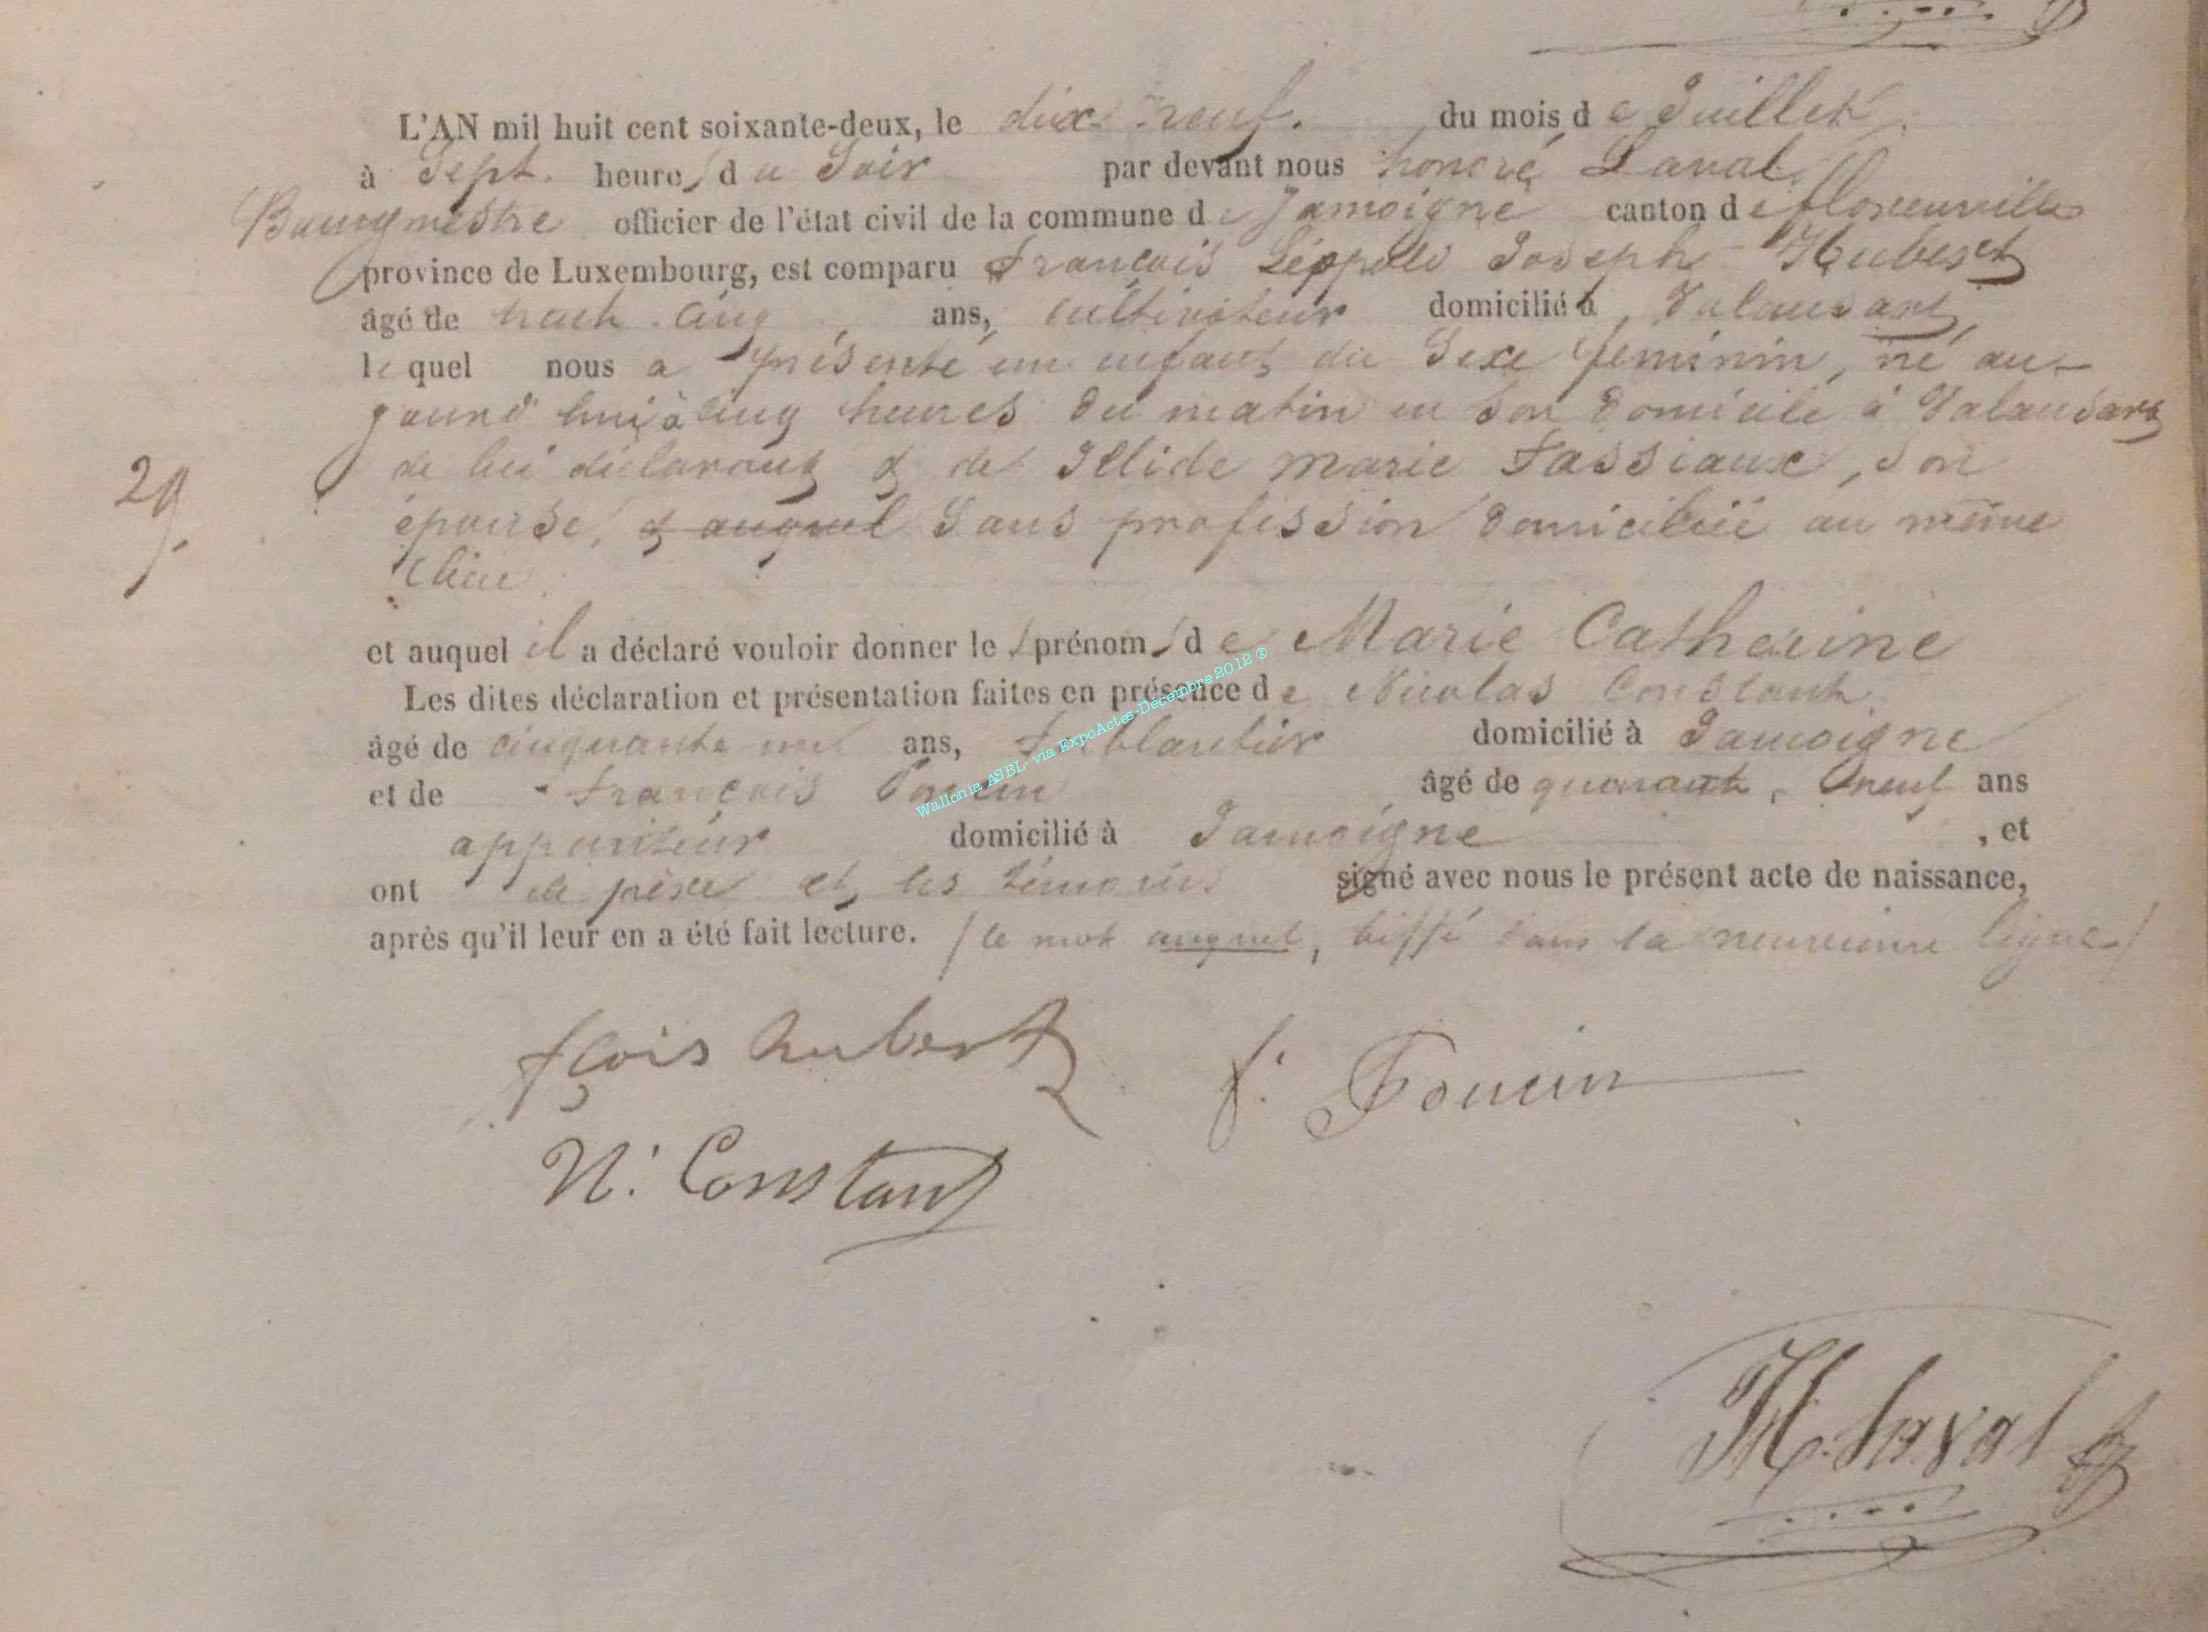 L'AN mil huit cent soixante-deux, le dix neuf. du mois de Juillet
à Sept heures du Soir par devant nous honoré Laval
Bourgmestre officier de l'état civil de la commune de Jamoigne canton de florenville
province de Luxembourg, est comparu François Léopold Joseph Hubert
âgé de trente cinq ans, cultivateur domicilié à Valansart,
lequel nous a présenté un enfant du Sexe féminin, né au-
jourd'hui à cinq heures du matin en Son domicile à Valansart
de lui déclarant & de Marie Fassiaux, Son
épouse, & auquel Sans profession domiciliée au même
lieu
29.
et auquel il a déclaré vouloir donner les prénoms de Marie Catherine
Les dites déclaration et présentation faites en présence de Nicolas Constant
âgé de cinquante ans, ferblantier domicilié à Jamoigne
et de François Poncin âgé de quarante neuf ans
appariteur domicilié à Jamoigne , et
ont le père et les témoins signé avec nous le présent acte de naissance,
après qu'il leur en a été fait lecture. / le mot auquel, biffé dans la neuvième ligne /
Wallonia ASBL via ExpoActes-Décembre 2012 ®
fçois hubert
f. Poncin
N. Constant
H. Laval